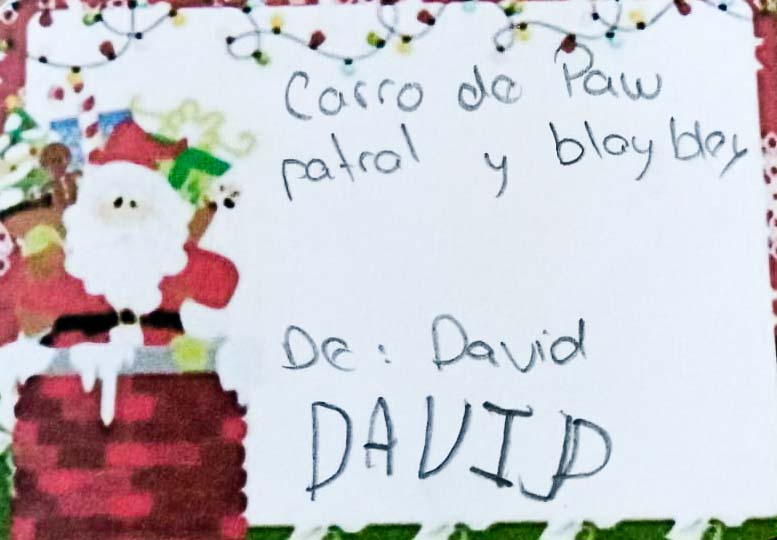 Carro de Paw
patrol y blay bley
De: David
DAVID